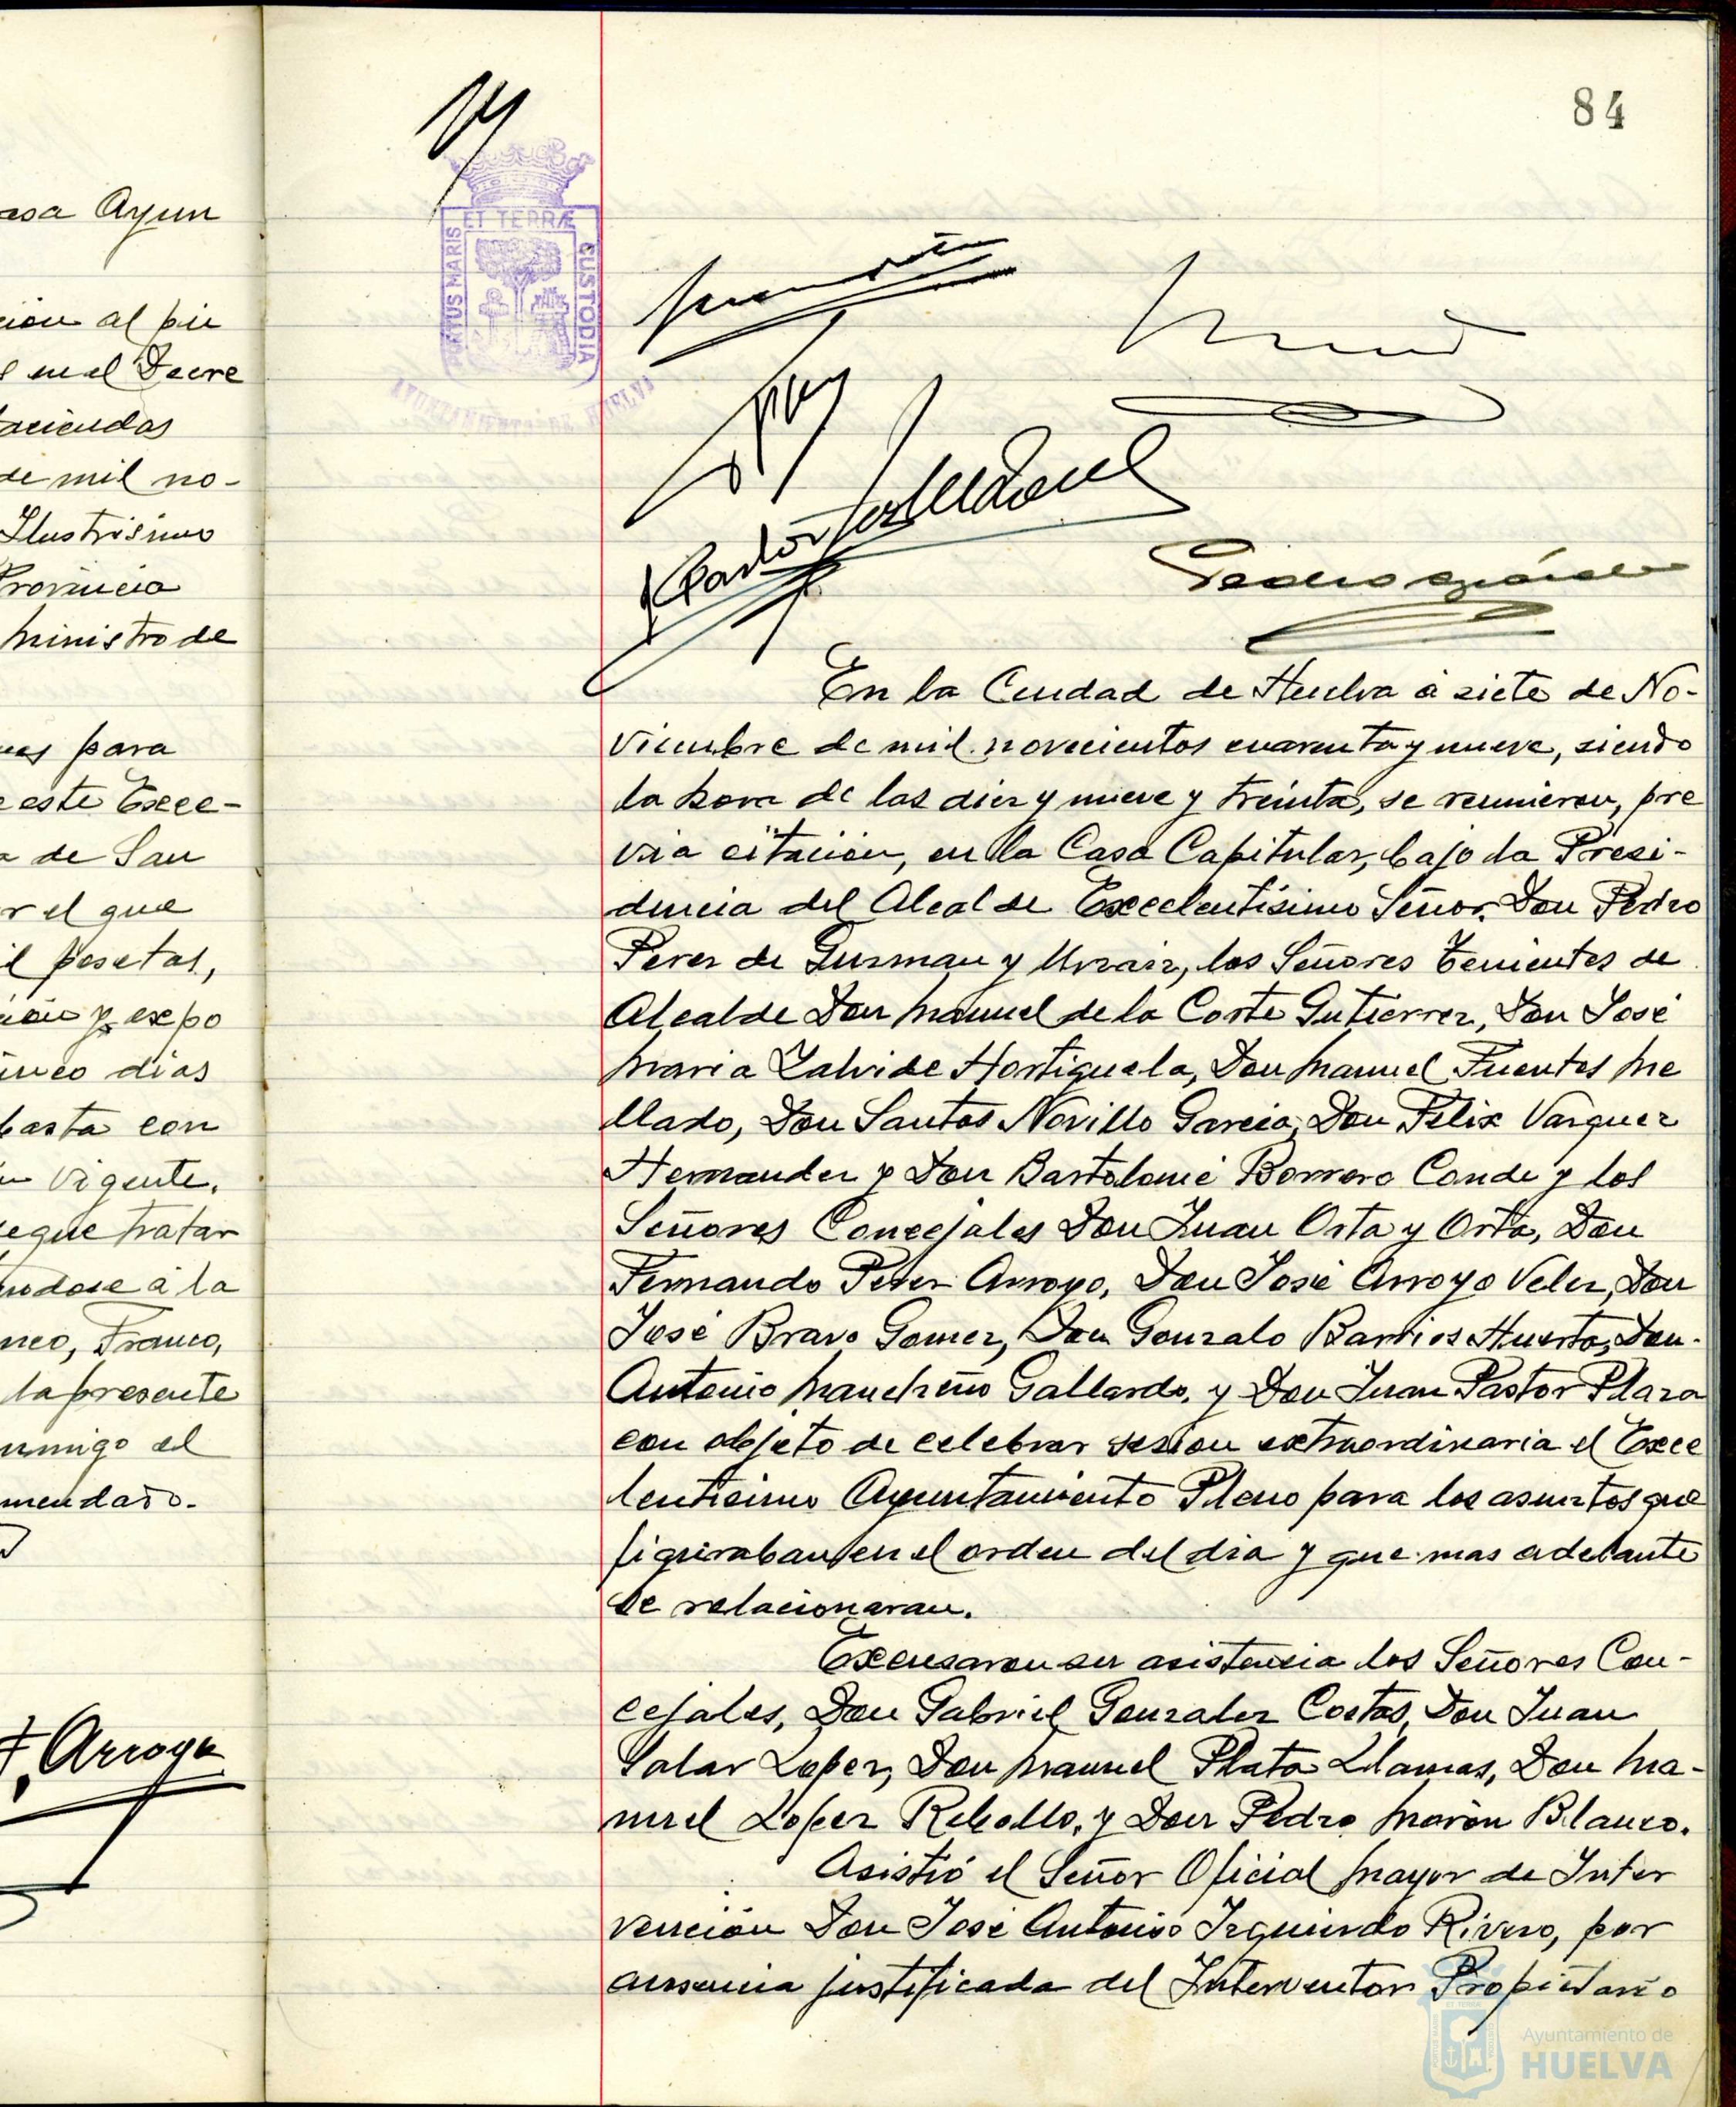 asa Ayun
cion al pie
s en el Decre
aciendas
de mil no-
Ilustrisimo
Provincia
Ministro de
para
este Exce-
a de San
r el que
il pesetas,
ción y expo
inco dias
basta con
n vigente.
que tratar
ndose á la
neo, Franco,
la presente
nmigo el
mendado.
F. Arroyo
84
PORTUS MARIS ET TERRÆ CUSTODIA
AYUNTAMIENTO DE HUELVA
En la Ciudad de Huelva á siete de No-
viembre de mil novecientos cuarenta y nueve, siendo
la hora de las diez y nueve y treinta, se reunieron, pre
via citación, en la Casa Capitular, bajo la Presi-
dencia del Alcalde Excelentísimo Señor Don Pedro
Perez de Guzman y Urzaiz, los Señores Tenientes de
Alcalde Don Manuel de la Corte Gutierrez, Don José
Maria Zalvide Hortiguela, Don Manuel Fuentes Me
llado, Don Santos Novillo Garcia, Don Felix Vazquez
Hernandez y Don Bartolomé Borrero Conde y los
Señores Concejales Don Juan Orta y Orta, Don
Fernando Perez Arroyo, Don José Arroyo Velez, Don
José Bravo Gomez, Don Gonzalo Barrios Huerta, Don
Antonio Mancheño Gallardo, y Don Juan Pastor Plaza
con objeto de celebrar sesion extraordinaria el Exce
lentisimo Ayuntamiento Pleno para los asuntos que
figuraban en el orden del dia y que mas adelante
se relacionaran.
Excusaron su asistencia los Señores Con-
cejales, Don Gabriel Gonzalez Costas, Don Juan
Salas Lopez, Don Manuel Plata Llamas, Don Ma-
nuel Lopez Rebollo, y Don Pedro Morón Blanco.
Asistió el Señor Oficial Mayor de Inter
vención Don José Antonio Izquierdo Rivero, por
ausencia justificada del Interventor Propietario
Ayuntamiento de
HUELVA